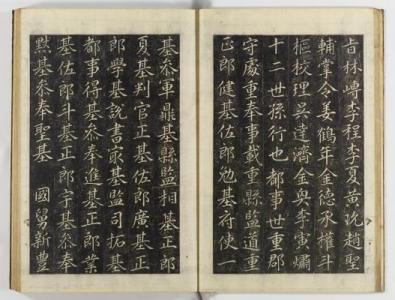 旨林嶹李程李夏黃玧趙聖
輔掌令姜鶴年金德承權斗
樞校理吳達濟金奥李㝢爀
十二世孫行也都事世重郡
守處重奉事載重縣監道重
正郎健基佐郎勉基府使一
基參軍鼎基縣監相基正郎
夏基判官正基佐郎廣基正
郎學基說書家基監司拓基
都事得基參奉進基正郎業
基佐郎斗基正郎宇基參奉
黙基參奉聖基 國舅新豊